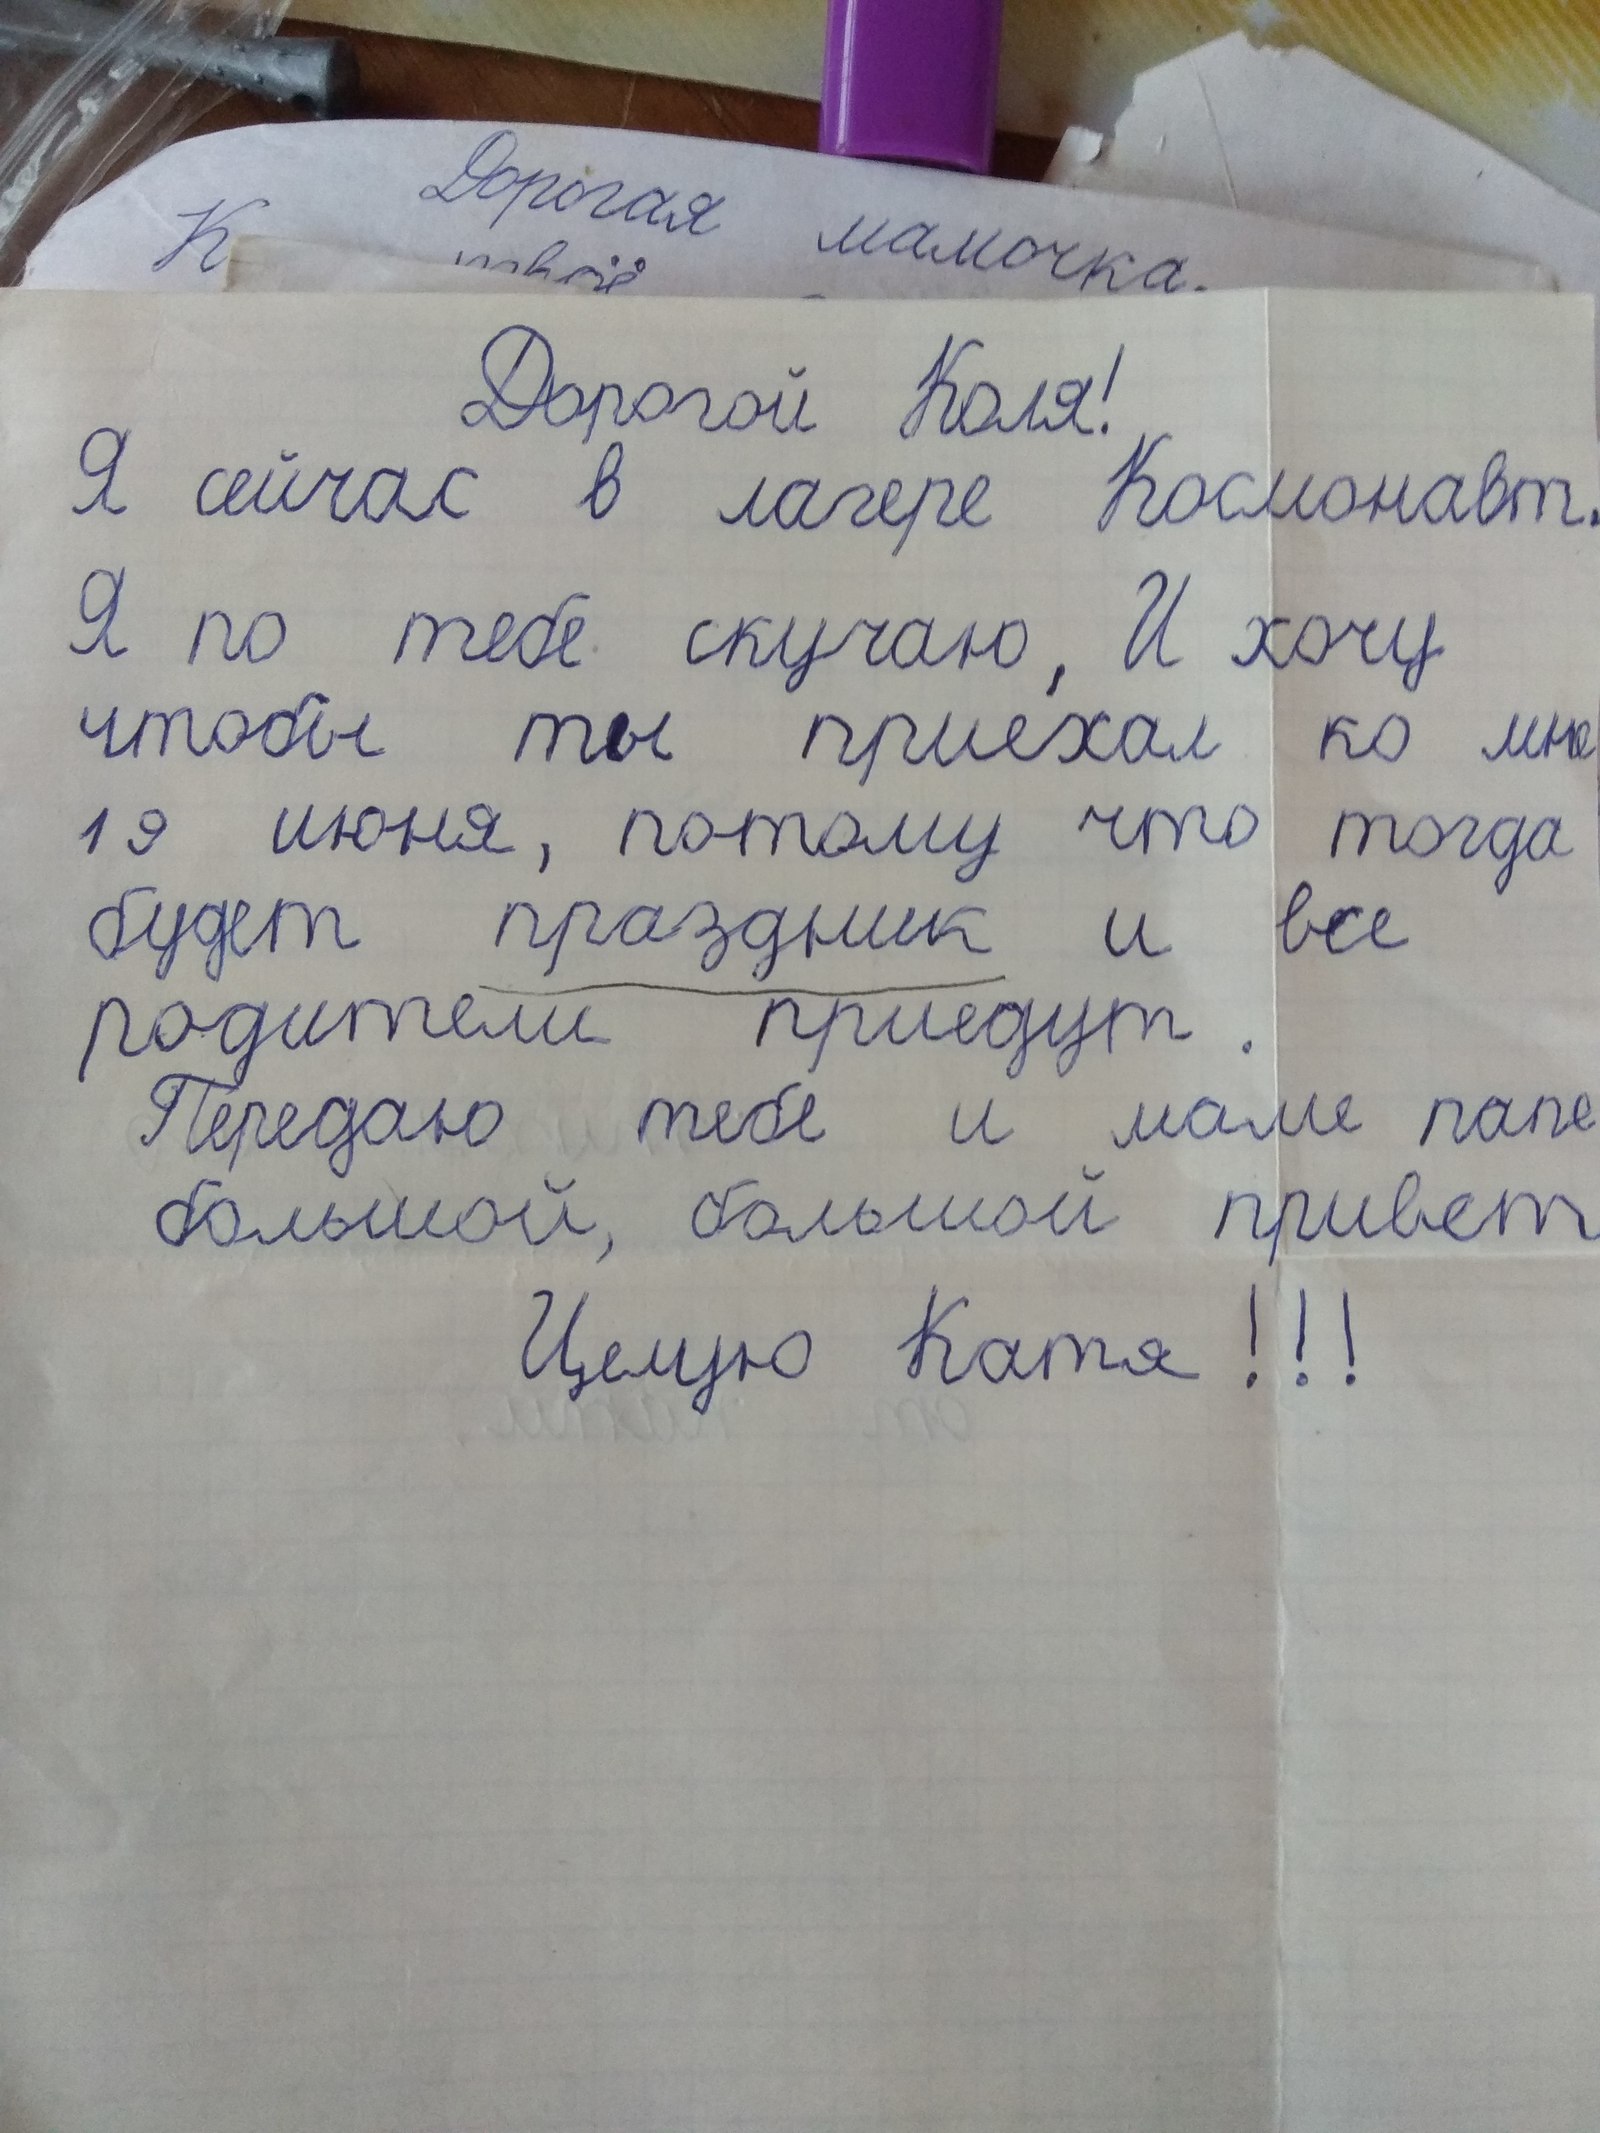 Дорогая мамочка.
К
Дорогой Коля!
Я сейчас в лагере Космонавт.
Я по тебе скучаю, И хочу
чтобы ты приехал ко мне
19 июня, потому что тогда
будет праздник и все
родители приедут.
Передаю тебе и маме папе
большой, большой привет
Целую Катя!!!